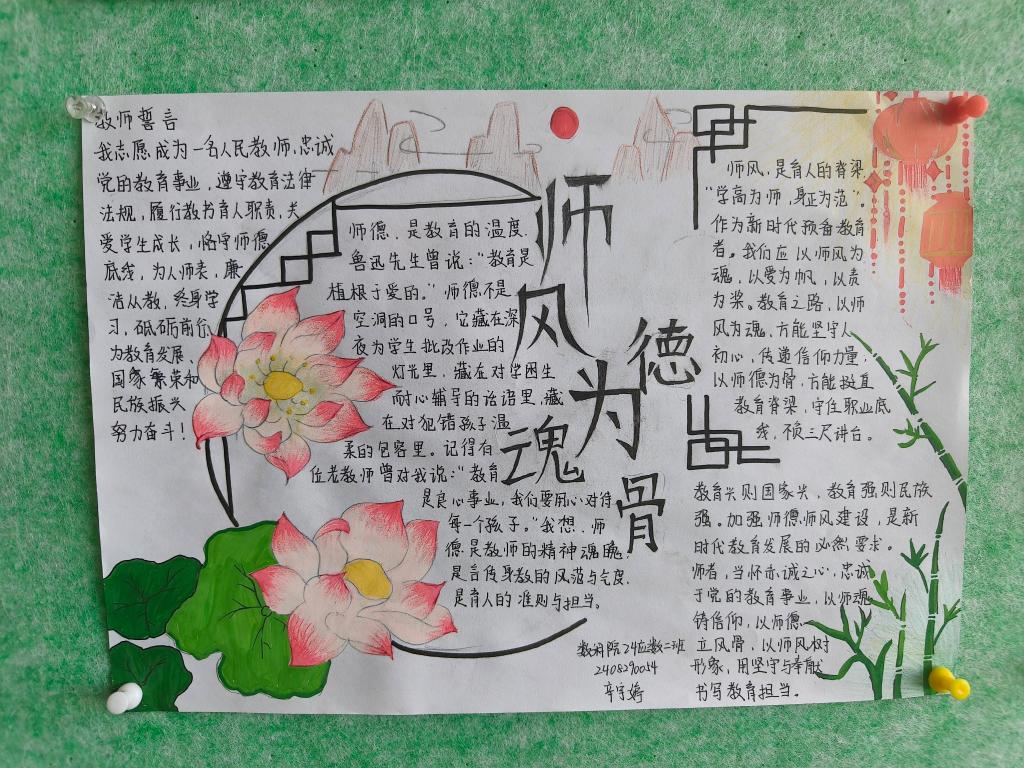 教师誓言
我志愿成为一名人民教师,忠诚
党的教育事业,遵守教育法律
法规,履行教书育人职责,关
爱学生成长,恪守师德
底线,为人师表,廉
洁从教,终身学
习,砥砺前行,
为教育发展、
国家繁荣和
民族振兴
努力奋斗!
师风为魂
德为骨
师德,是教育的温度.
鲁迅先生曾说:“教育是
植根于爱的。”师德不是
空洞的口号,它藏在深
夜为学生批改作业的
灯光里,藏在对学困生
耐心辅导的话语里,藏
在对犯错孩子温
柔的包容里。记得有
位老教师曾对我说:“教育
是良心事业,我们要用心对待
每一个孩子。”我想,师
德是教师的精神魂魄,
是言传身教的风范与气度,
是育人的准则与担当。
数科院24应数二班
2408290054
辛宇婷
师风,是育人的脊梁.
“学高为师,身正为范”。
作为新时代预备教育
者。我们应以师风为
魂,以爱为帆,以责
为桨。教育之路,以师
风为魂,方能坚守人
初心,传递信仰力量,
以师德为骨,方能挺直
教育脊梁,守住职业底
线,不负三尺讲台。
教育兴则国家兴,教育强则民族
强。加强师德师风建设,是新
时代教育发展的必然要求。
师者,当怀赤诚之心,忠诚
于党的教育事业,以师魂
铸信仰,以师德
立风骨,以师风树
形象,用坚守与奉献
书写教育担当。